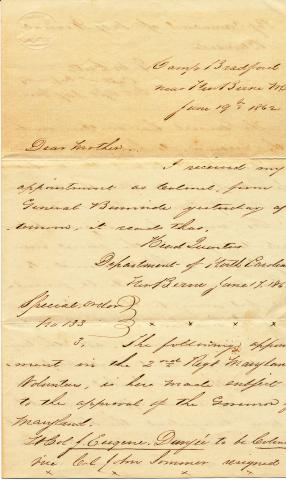 Camp Bradford
near New Berne N.C.
June 19th 1862
Dear Mother.
I received my
appointment as Colonel, from
General Burnside yesterday af
ternoon, it reads thus.
Head Quarters
Department of North Carolina
New Berne June 17. 186
Special Order
No 133
x x x x
3. The following appoint
ment in the 2nd Regt Maryland
Volunteers, is here made subject
to the approval of the Governor of
Maryland.
Lt Col J. Eugene Duryée to be Colonel
vice Col John Sommer resigned
x x x x